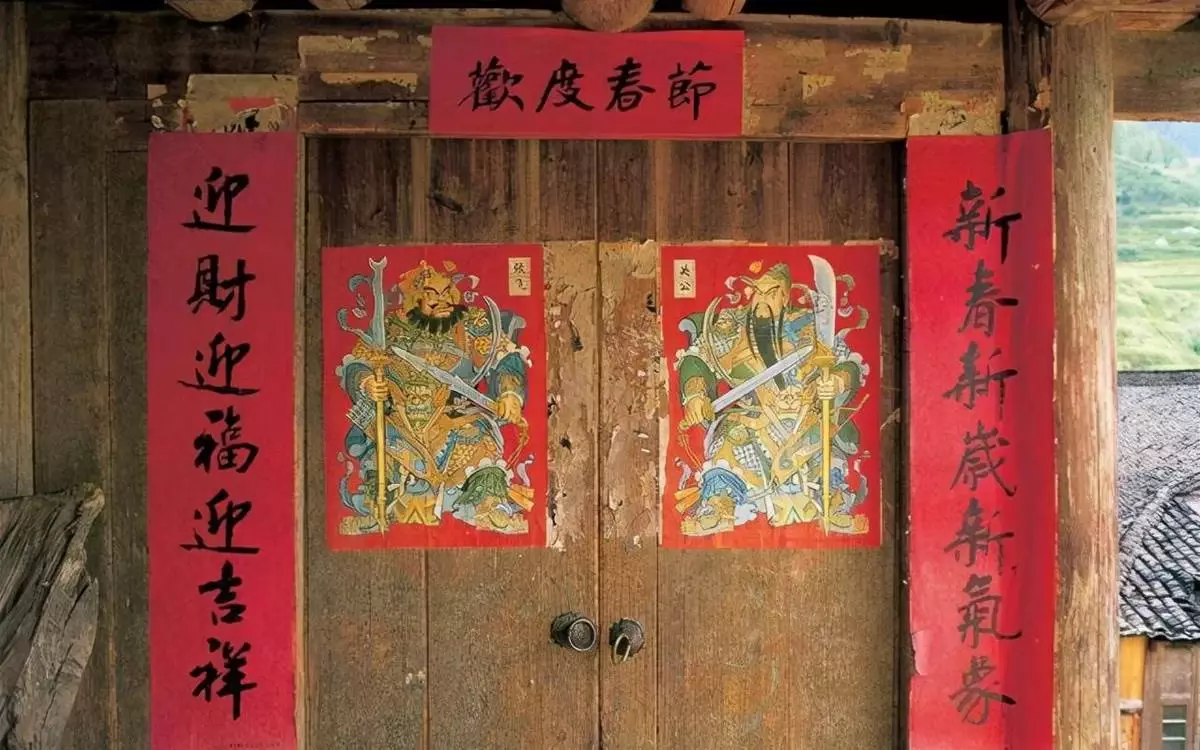 歡度春節
新春新歲新氣象
迎財迎福迎吉祥
張飛
关公